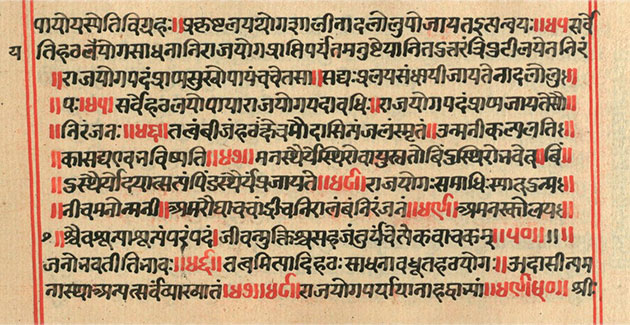 पायोयस्येतिविग्रहः॥प्रकृष्टलययोगशालीनादलोलुपोजायतइत्यन्वयः॥४५सर्वे
य तिहठलययोगसाधनानिराजयोगप्राप्तिपर्यंतमनुष्ठेयानि त्रिपुटीलयेननिरं
॥राजयोगपदंप्राप्तुसुखोपायंचचेतसा॥सद्यःप्रलयसंक्षयीजायतेनादलोलु॥
॥पः॥४५॥सर्वेहठलयोपायाराजयोगपदावधिः॥राजयोगपदंप्राप्यजायतेसौ
॥निरंजनः॥४६॥तत्वंबीजंहठंक्षेत्रमौदासिन्यंजलंस्मृतं॥उन्मनीकल्पलति॥
॥कासद्यएवभविष्यति॥४७॥मनस्थैर्येस्थिरोवायुस्ततोबिंदुस्थिरोभवेत्॥बिं
॥दुस्थैर्योदयात्सत्यंपिंडस्थैर्यंप्रजायते॥४८॥राजयोगःसमाधिःस्यादुन्म॥
॥नीचमनोन्मनी॥ निरालंबंनिरंजनं॥४९॥अमनस्कोलय॥
श्चैवशून्याशून्यंपरंपदं॥जीवन्मुक्तिश्चसहजंतुर्यंचेत्येकवाचकम्॥५०॥
जनोभवतीतिभावः॥४६॥तत्वमित्यादिहठःसाधनावधूतहठयोगः॥उदासीन्यम
नास्थाअन्यत्सर्वंव्याख्यातं॥४७॥४८॥राजयोगपर्यायानाहद्वाभ्यां॥४९॥५०॥श्री